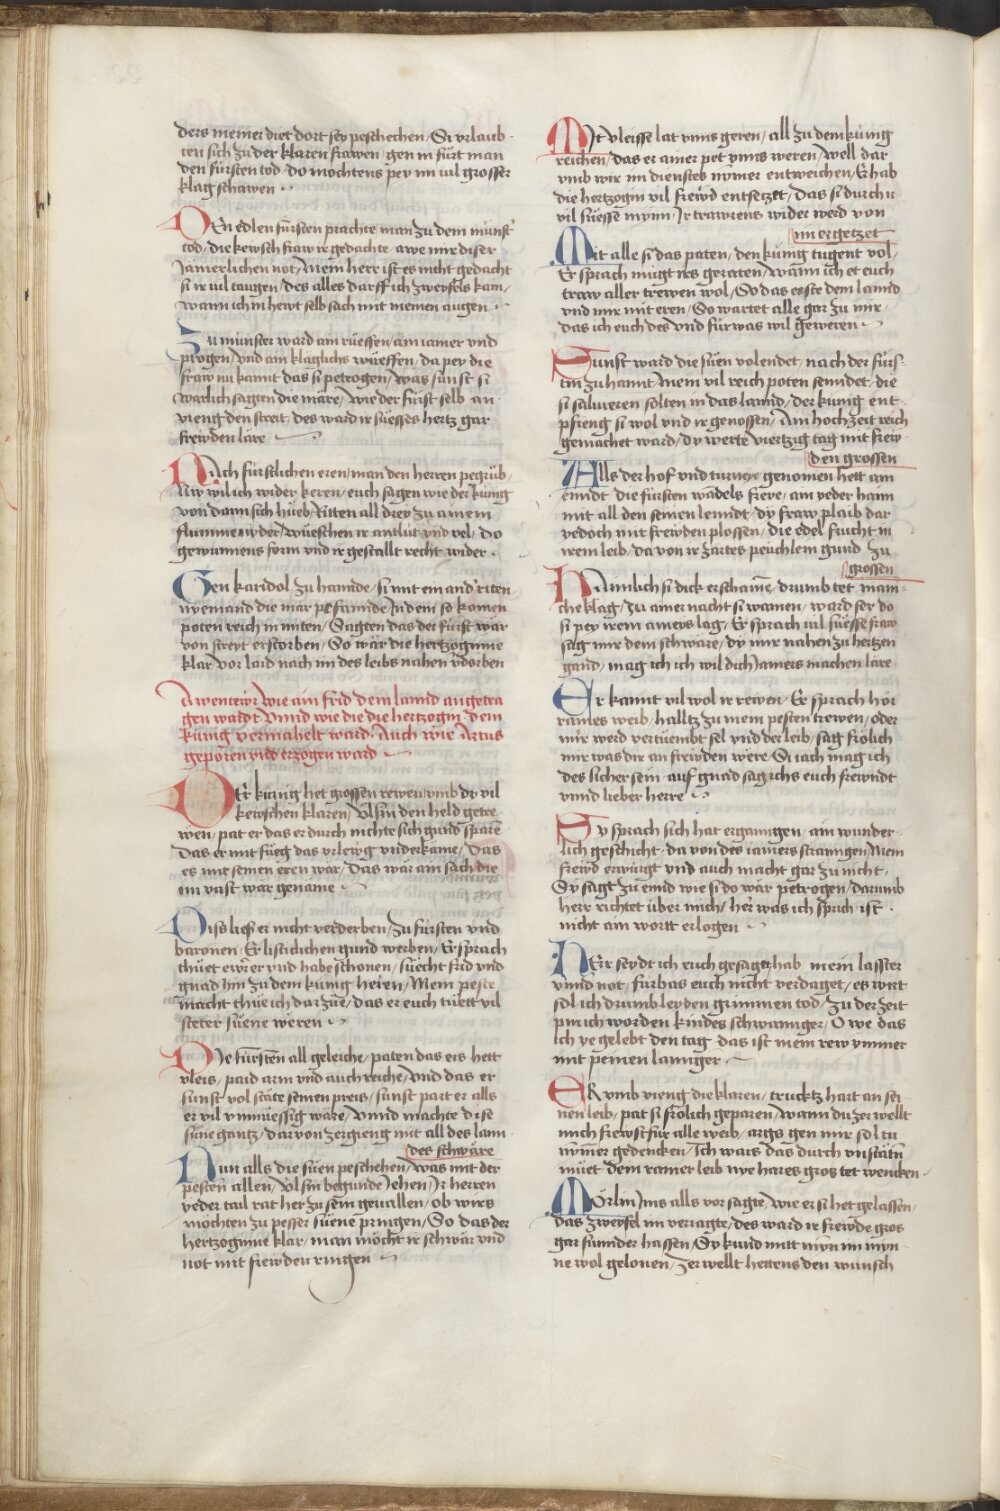 ders meiner diet dort sey peschechen / Si vrlaub
ten sich zu der klaren frawen / gen in fürt man
den fürsten tod / do mochtens pey im vil grosser
klag schawen
DEn edlen fürsten prachte man zu dem münst'
tod / die kewsch fraw ir gedachte / awe mir diser
Jämerlichen not / Mein herr ist es nicht gedacht
si ir vil taugen / des alles darff ich zweyfels kain /
wann ich in hewt selb sach mit meinen augen
Zu münster ward ain rüeffen / ain iamer vnd
progen / vnd ain kläglichs wüeffen / da pey die
fraw nu kannt das si petrogen / was sunst si
warlich sagten die märe / wie der fürst selb an
vieng den streit / des ward ir süesses hertz gar
frewden läre
NAch fürstlichen eren / man den herren pegrüb
Nw wil ich wider keren / euch sagen wie der künig
von dann sich hüeb / Ritten all drey zu ainem
flumme nyder / wüeschen ir antlüt vnd vel / do
gewunnens form vnd ir gestallt recht wider
Gen karidol zu hannde / si mit einand' riten
nyemand die mär pefannde / Indem so komen
poten reich in miten / Sagten das der fürst wär
von streyt erstorben / So wär die hertzoginne
klar vor laid nach im des leibs nahen v'dorben
Awentewr wie ain frid dem lannd angetra
gen wardt Vnnd wie die die hertzogin dem
künig vermahelt ward Auch wie Artus
geporen vnd erzogen ward
DEr künig het grossen rewen / vmb dy vil
kewschen klaren / Vlsin den held getre
wen / pat er das er durch nichte sich gund sparn
Das er mit füeg das vrlewg vnderkäme / Das
es mit seinen eren wär / Das wär ain sach die
im vast wär genäme
Diss liess er nicht verderben / zu fürsten vnd
baronen / Er listiclichen gund werben / Er sprach
thüet ewr er vnd habe schonen / süecht frid vnd
gnad hin zu dem künig heren / Mein peste
macht thüe ich dar züe / das er euch tüett vil
stëter süene weren
Die fürsten all geleiche / paten das ers hett
vleis / paid arm vnd auch reiche / Vnd das er
sunst vol stäte seinen preis / sunst part er alls
er vil vnmüessig wäre / Vnnd machte dise
süne gantz / dar von zergieng mit all des lann
des schwäre
Nun alls die süen peschehen / was mit der
pesten allen / Vlsin begunde Iehen / Ir herren
yeder tail rat her zu sein geuallen / ob wirs
möchten zu pesser süene pringen / So das der
hertzoginne klar / man möcht ir schwär vnd
not mit frewden ringen
Mit vleisse lat vnns geren / all zu dem künig
reichen / das er ainer pet vnns weren / well dar
vmb wir im dienstes nymer entweichen / Er hab
die hertzogin vil frewd entsetzet / Das si durch ir
vil süesse mynn / Ir trawrens wider werd von
im ergetzet
Mit alle si das paten / den künig tugent vol /
Er sprach mügt irs geraten / wann ich et euch
traw aller trewen wol / So das erste dem lannd
vnd mir mit eren / So wartet alle gar zu mir
das ich euch des vnd fürwas wil geweren
Sunst ward die süen volendet / nach der fürs
tin zu hannt / Mein vil reich poten senndet / die
si salueren solten in das lannd / der künig ent
pfieng si wol vnd ir genossen / Ain hochzeit reich
gemachet ward / dy werte viertzig tag mit frew
den grossen
Alls der hof vnd turney genomen hett ain
enndt die fürsten wadels freye / ain yeder hann
mit all den seinen lenndt / dy fraw plaib dar
yedoch mit frewden plossen / die edel frucht in
irem leib / da von ir zartes peüchlein gund zu
grossen
NAinlich si dick erschame / drumb tet man
che klag / zu ainer nacht si wainen / ward ser do
si pey irem ameys lag / Er sprach vil süesse fraw
sag mir dem schwäre / dy mir nahen zu hertzen
gand / mag ich ich wil dich Jamers machen läre
Er kannt vil wol ir rewen / Er sprach hör
raines weib / halltz zu mein pesten trewen / oder
mir werd vertüembt sel vnd der leib / sag frölich
mir was dir an frewden werr / Si iach mag ich
des sicher sein auf gnad sag ichs euch frewndt
vnnd lieber herre
Sy sprach sich hat ergangen / ain wunder
lich geschicht / da von des iamers stranngen / Mein
frewd erwürgt vnd auch macht gar zu nicht
Sy sagt zu ennd wie si do wär petrogen / darumb
herr richtet über mich / her was ich sprich ist
nicht ain wortt erlogen
NEr seydt ich euch gesaget hab mein lasster
vnnd not / fürbas euch nicht verdaget / es wirt
sol ich drumb leyden grimmen tod / zu der zeit
pin ich worden kindes schwannger / O we das
ich ye gelebt den tag das ist mein rew ymmer
mit peinen lannger
ER vmb vieng die klaren / trucktz hart an sei
nen leib / pat si frölich geparen / wann du zer wellt
mich frewst für alle weib / args gen mir sol tu
nymer gedencken / Ich wais das durch vnstätn
müet dem rainer leib nye hares gros tet wencken
Mörlin Ims alls vor sagte / wie er si het gelassen /
das zweyfel im veriagte / des ward ir frewde gros
gar sunnder hassen / Sy kund mitt myn im myn
ne wol gelonen / zer wellt hettens den wunsch